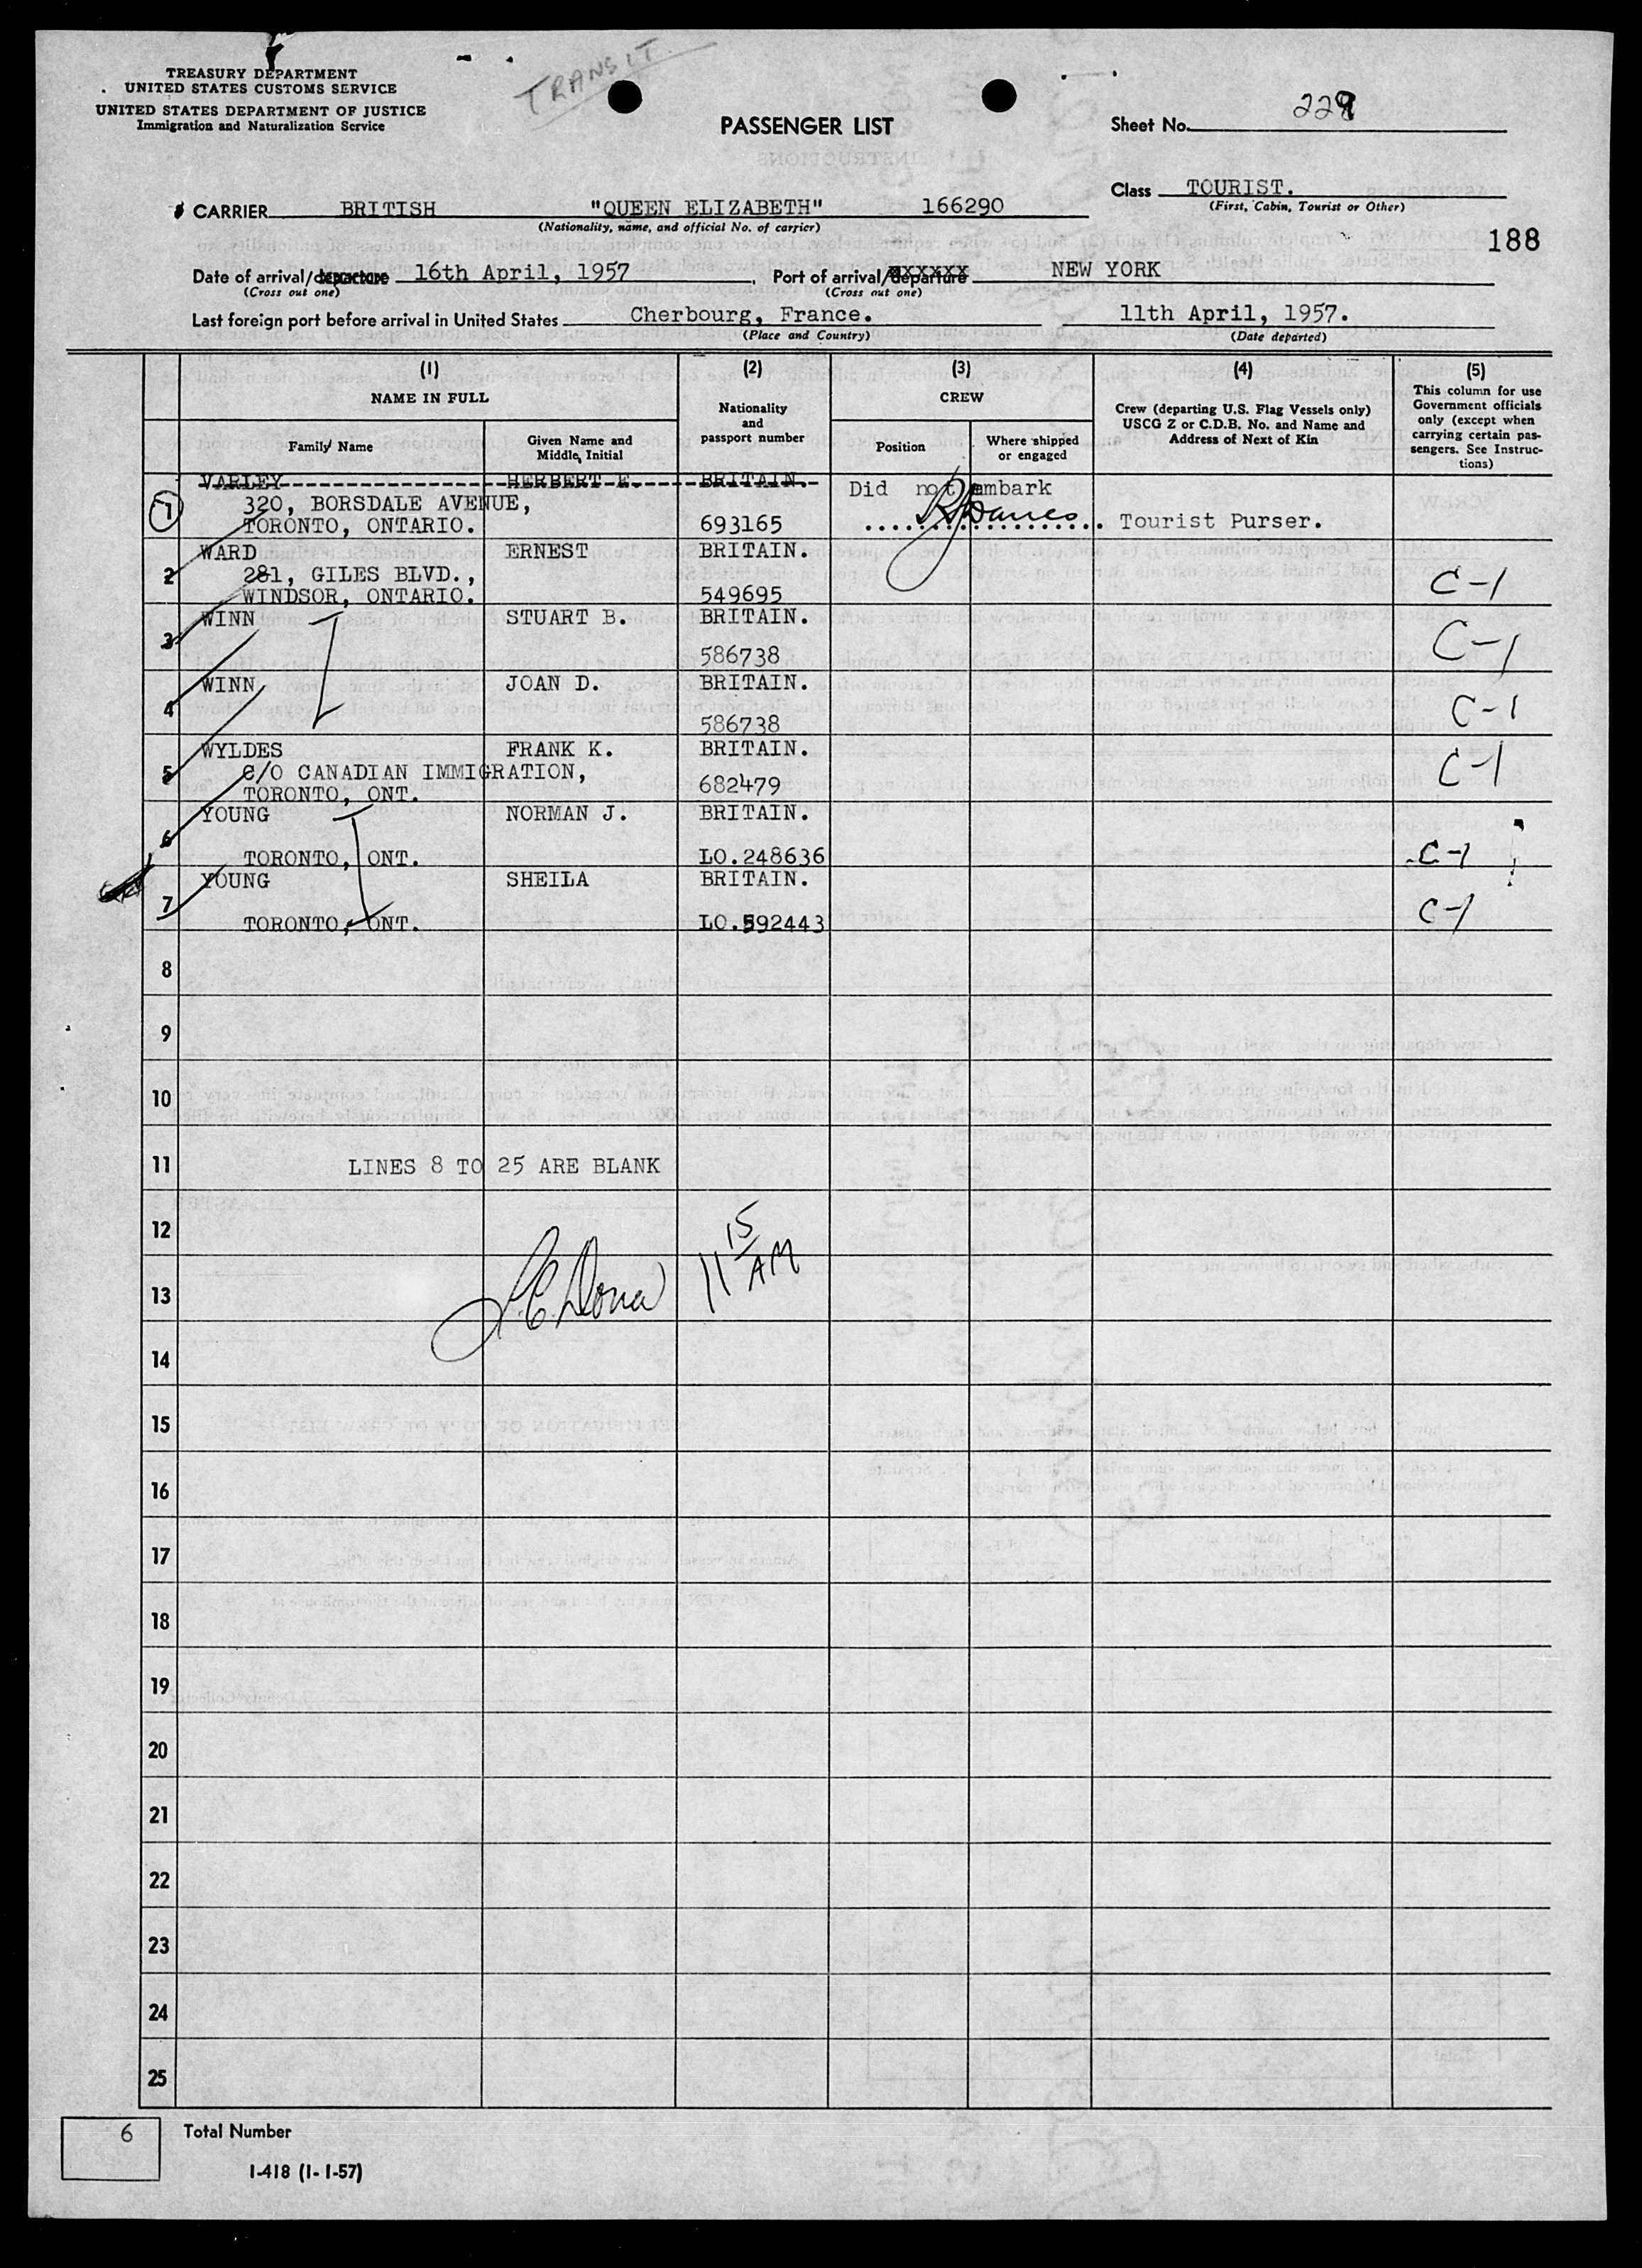 TREASURY DEPARTMENT
UNITED STATES CUSTOMS SERVICE
UNITED STATES DEPARTMENT OF JUSTICE
Immigration and Naturalization Service
TRANSIT
PASSENGER LIST
Sheet No. 229
Class TOURIST.
(First, Cabin, Tourist or Other)
CARRIER BRITISH "QUEEN ELIZABETH" 166290
(Nationality, name, and official No. of carrier)
188
Date of arrival/departure 16th April, 1957. Port of arrival/departure NEW YORK
(Cross out one) (Cross out one)
Last foreign port before arrival in United States Cherbourg, France. 11th April, 1957.
(Place and Country) (Date departed)
(1) (2) (3) (4) (5)
NAME IN FULL
Nationality and passport number
CREW
Crew (departing U.S. Flag Vessels only) USCG Z or C.D.B. No. and Name and Address of Next of Kin
This column for use Government officials only (except when carrying certain passengers. See Instructions)
Family Name Given Name and Middle Initial Position Where shipped or engaged
1 VARLEY HERBERT E. BRITAIN. Did not embark
320, BORSDALE AVENUE,
TORONTO, ONTARIO. 693165 Tourist Purser.
2 WARD ERNEST BRITAIN.
281, GILES BLVD., C-1
WINDSOR, ONTARIO. 549695
3 WINN STUART B. BRITAIN.
586738 C-1
4 WINN JOAN D. BRITAIN.
586738 C-1
5 WYLDES FRANK K. BRITAIN.
C/O CANADIAN IMMIGRATION, C-1
TORONTO, ONT. 682479
6 YOUNG NORMAN J. BRITAIN.
TORONTO, ONT. LO.248636 C-1
7 YOUNG SHEILA BRITAIN.
TORONTO, ONT. LO.592443 C-1
8
9
10
11 LINES 8 TO 25 ARE BLANK
12
11 15 AM
13
14
15
16
17
18
19
20
21
22
23
24
25
6 Total Number
I-418 (1-1-57)